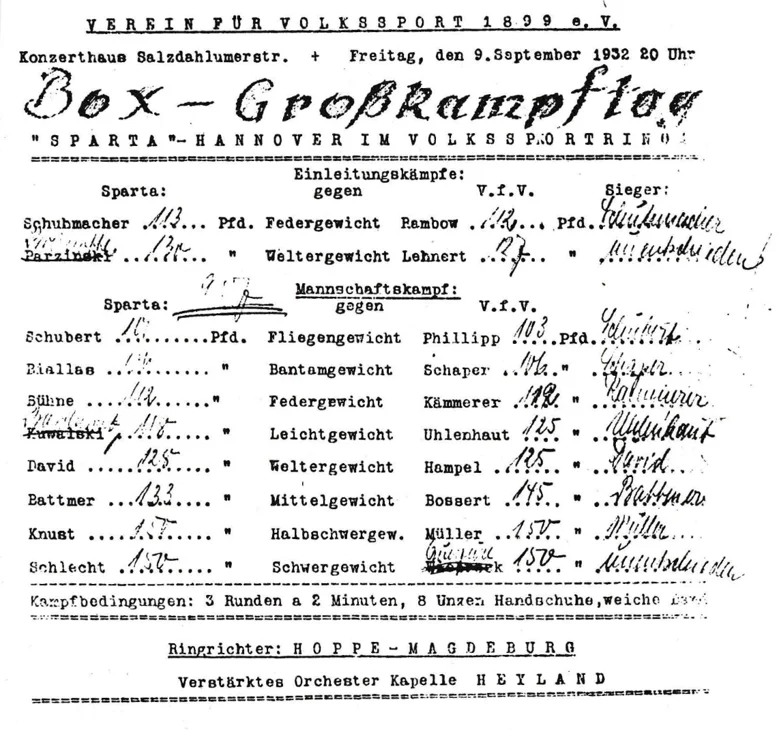 VEREIN FÜR VOLKSSPORT 1899 e.V.
Konzerthaus Salzdahlumerstr. + Freitag, den 9.September 1932 20 Uhr
Box - Großkampftag
"SPARTA"-HANNOVER IM VOLKSSPORTRING
Einleitungskämpfe:
Sparta: gegen V.f.V. Sieger:
Schuhmacher .113... Pfd. Federgewicht Rambow .112.... Pfd. Schuhmacher
Parzinski ...130... " Weltergewicht Lehnert ..127.. " unentschieden
Mannschaftskampf:
Sparta: gegen V.f.V.
Schubert ........Pfd. Fliegengewicht Phillipp 103 Pfd. Schubert
Biallas ........ " Bantamgewicht Schaper ..... " Schaper
Bühne ...112....... " Federgewicht Kämmerer .112. " Kämmerer
Kuwalski ..118.... " Leichtgewicht Uhlenhaut 125 " Uhlenhaut
David ......125.... " Weltergewicht Hampel ..125.. " David
Battmer ...133... " Mittelgewicht Bossert .145.. " Battmer
Knust .....150... " Halbschwergew. Müller ..150... " Müller
Schlecht ..150.... " Schwergewicht 150 " unentschieden
Kampfbedingungen: 3 Runden a 2 Minuten, 8 Unzen Handschuhe,weiche
Ringrichter: HOPPE-MAGDEBURG
Verstärktes Orchester Kapelle HEYLAND